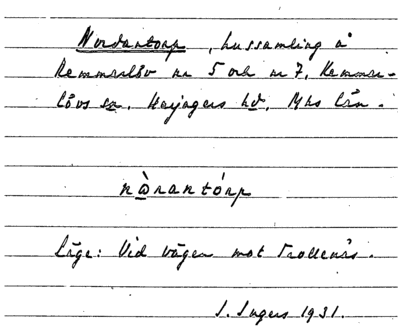 Nordantorp, hussamling å
Remmarlöv nr 5 och nr 7, Remmar-
lövs sn, Harjagers hd, Mhs län.
nòrantórp
Läge: Vid vägen mot Trollenäs.
I. Ingers 1931.